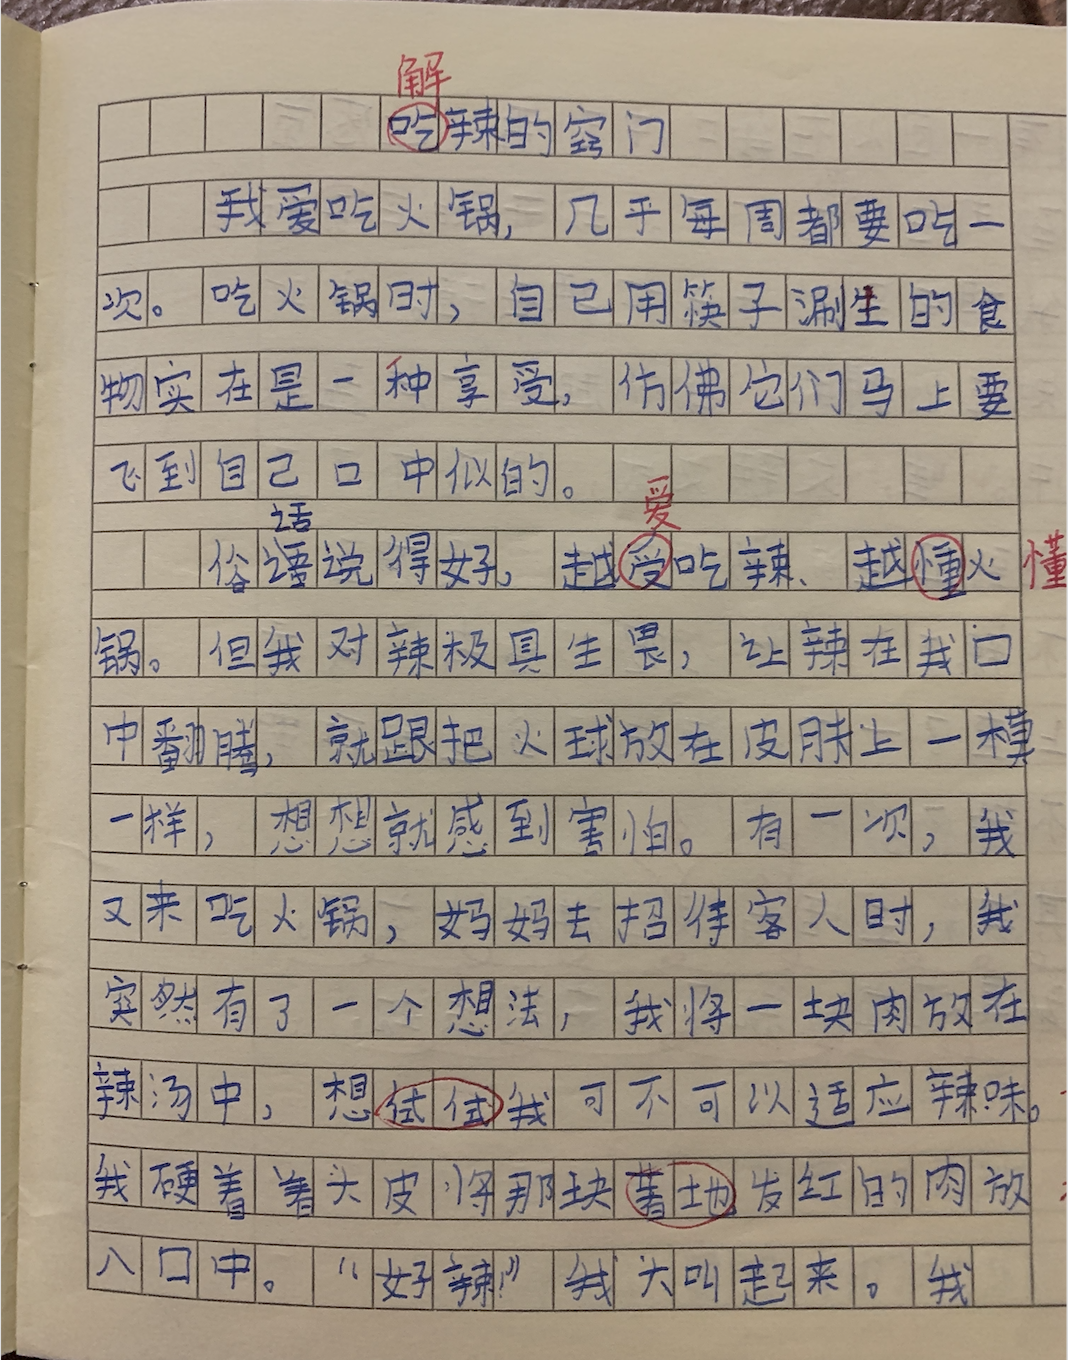 解
吃辣的窍门
我爱吃火锅，几乎每周都要吃一
次。吃火锅时，自己用筷子涮生的食
物实在是一种享受，仿佛它们马上要
飞到自己口中似的。
话 爱
俗语说得好，越受吃辣、越懂火 懂
锅。但我对辣极具生畏，让辣在我口
中翻腾，就跟把火球放在皮肤上一模
一样，想想就感到害怕。有一次，我
又来吃火锅，妈妈去招待客人时，我
突然有了一个想法，我将一块肉放在
辣汤中，想试试我可不可以适应辣味。
我硬着着头皮将那块著地发红的肉放
入口中。“好辣！”我大叫起来。我